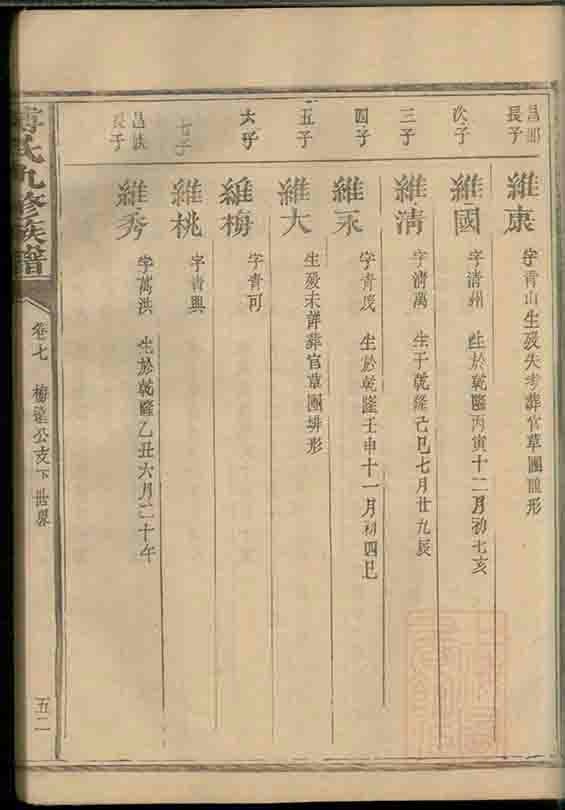 昌郎長子
維康
字青山生殁失考葬官草團龍形
次子
維國
字清州 生於乾隆丙寅十二月初七亥
三子
維清
字清萬 生于乾隆己巳七月廿九辰
四子
維永
字青茂 生於乾隆壬申十一月初四巳
五子
維大
生殁未詳葬官草團排形
六子
維梅
字青可
七子
維桃
字青興
長子
維秀
字萬洪 生於乾隆乙丑六月二十午
氏九修族譜
卷七
公支下世畧
五二